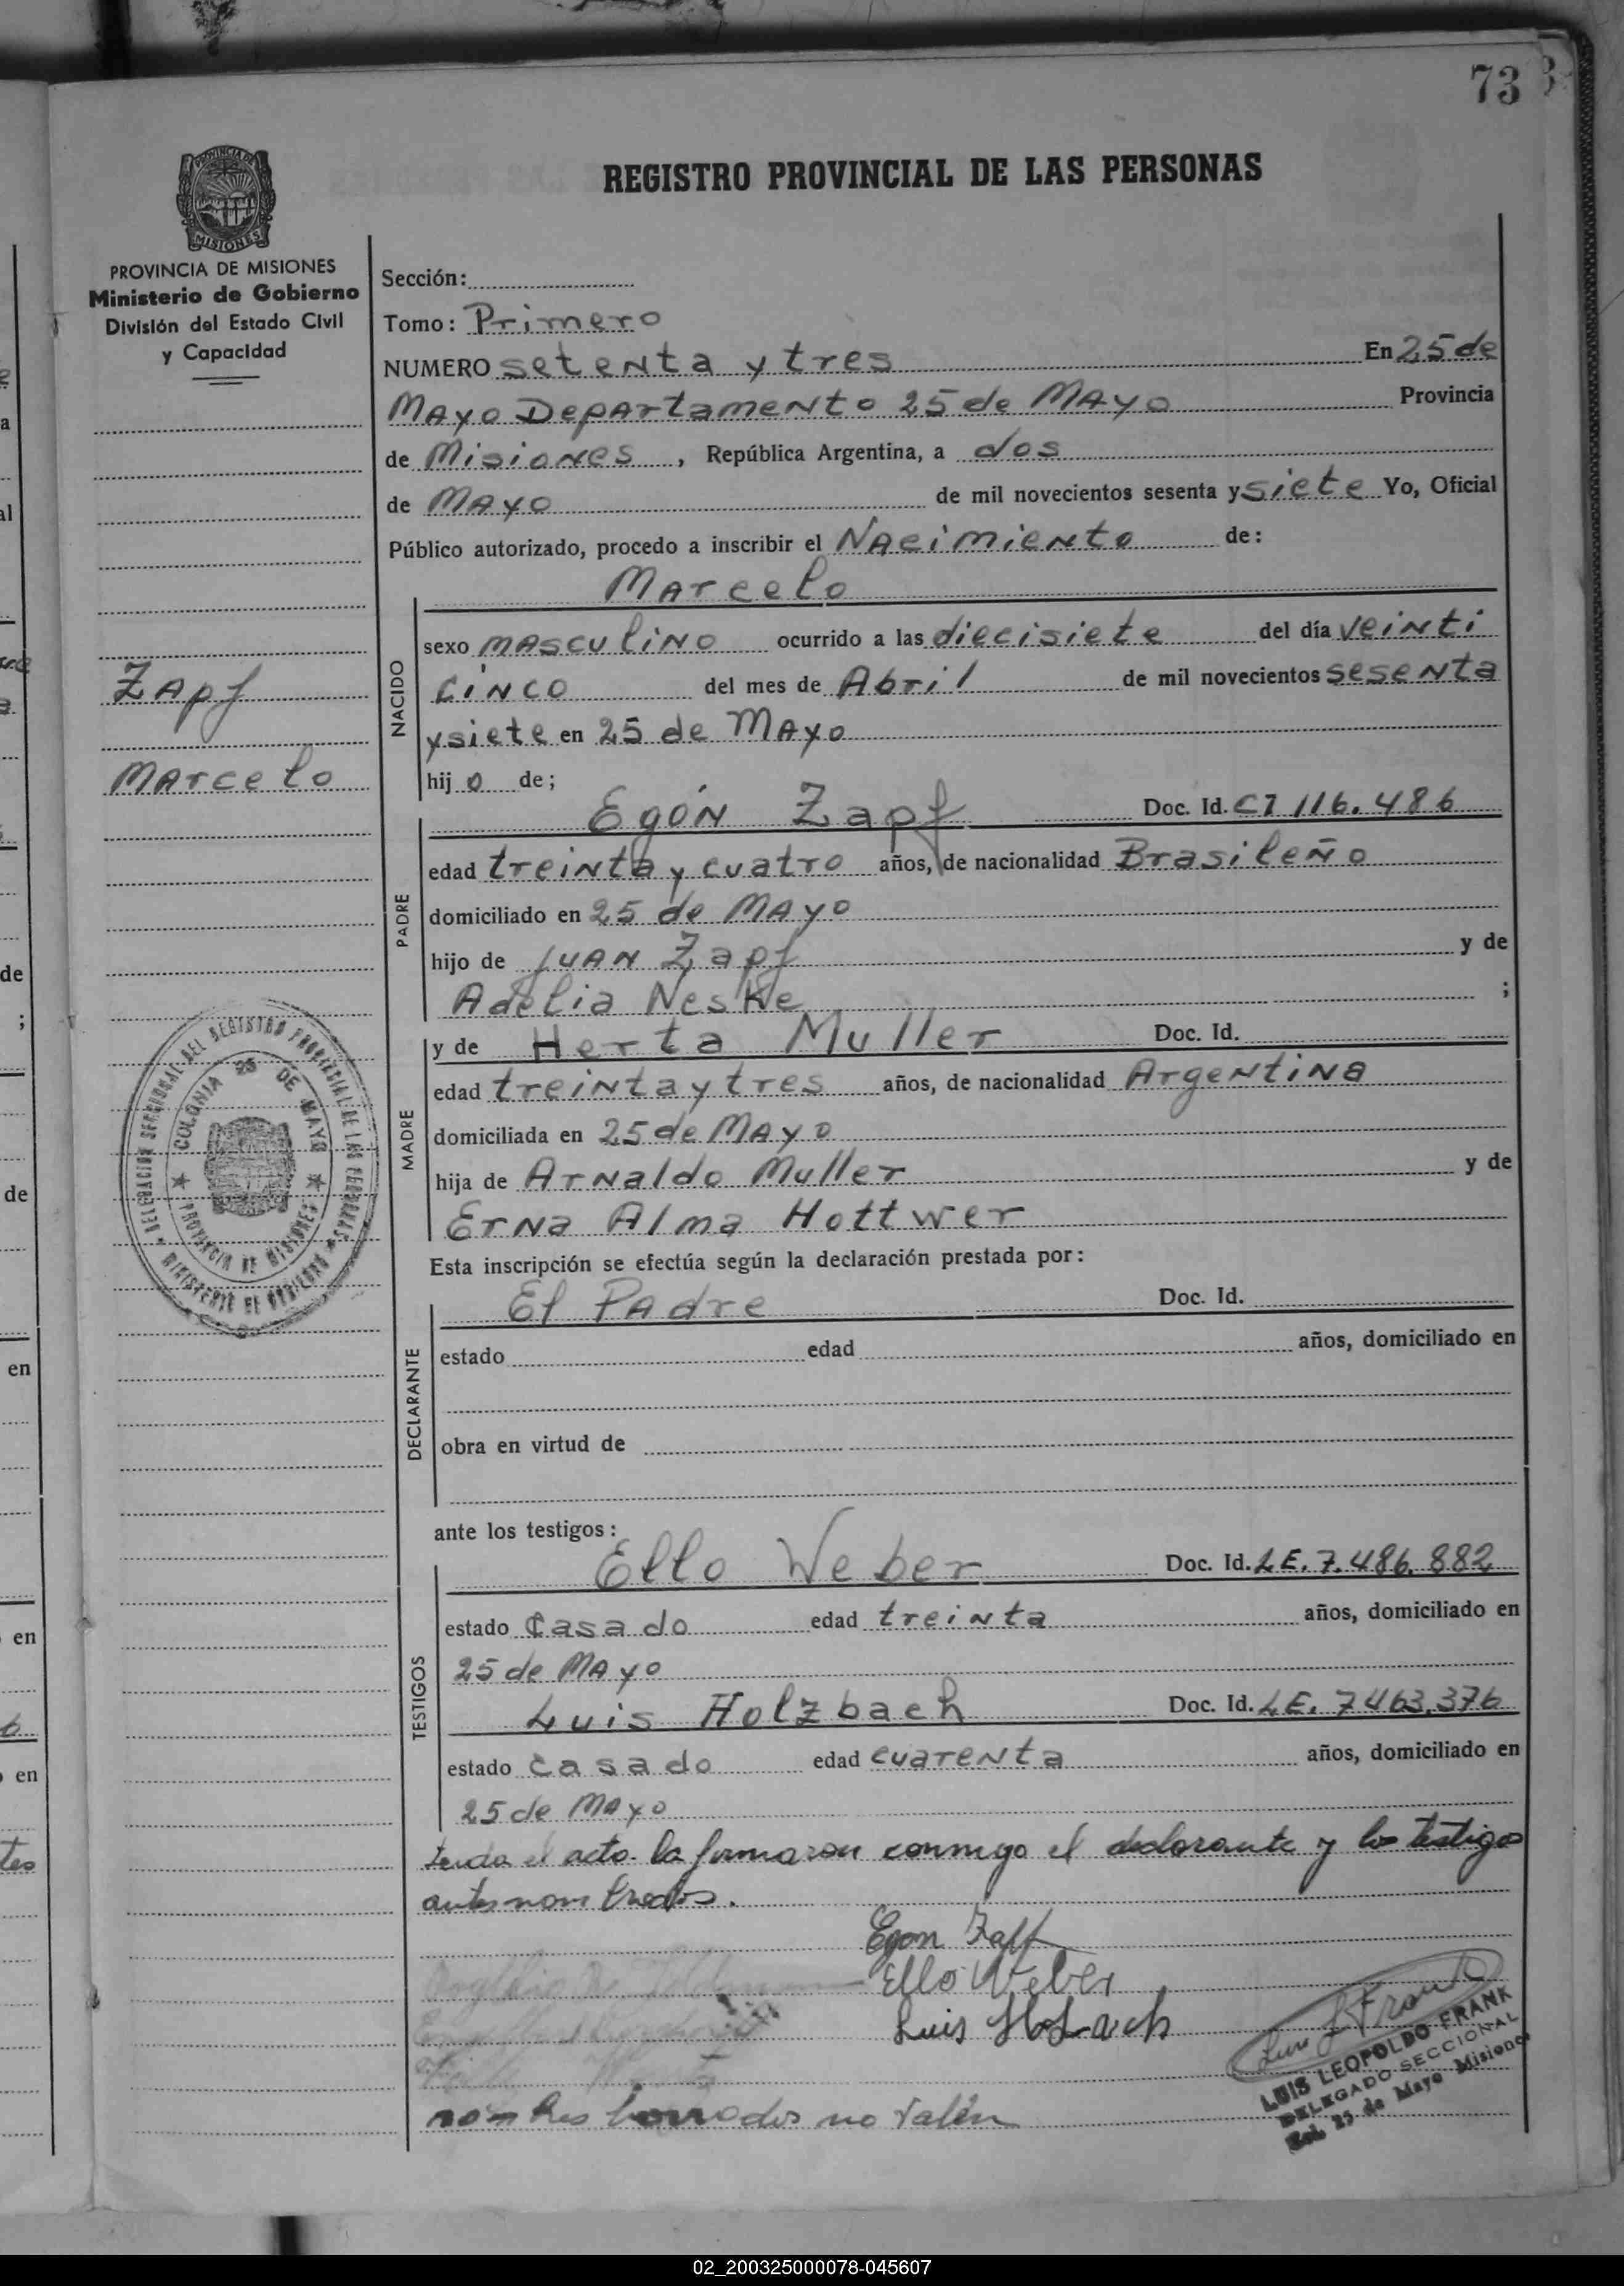 73
REGISTRO PROVINCIAL DE LAS PERSONAS
PROVINCIA DE
MISIONES
PROVINCIA DE MISIONES
Ministerio de Gobierno
División del Estado Civil
y Capacidad
Zapf
Marcelo
DELEGACION SECCIONAL DEL REGISTRO PROVINCIAL DE LAS PERSONAS
MINISTERIO DE GOBIERNO
COLONIA 25 DE MAYO
PROVINCIA DE MISIONES
Sección:
Tomo: Primero
NUMERO setenta y tres En 25 de
Mayo Departamento 25 de Mayo Provincia
de Misiones, República Argentina, a dos
de Mayo de mil novecientos sesenta y siete Yo, Oficial
Público autorizado, procedo a inscribir el Nacimiento de:
Marcelo
NACIDO
sexo masculino ocurrido a las diecisiete del día veinti
cinco del mes de Abril de mil novecientos sesenta
y siete en 25 de Mayo
hijo de;
Egón Zapf Doc. Id. CI 116.486
PADRE
edad treinta y cuatro años, de nacionalidad Brasileño
domiciliado en 25 de Mayo
hijo de Juan Zapf y de
Adelia Neske ;
y de Herta Muller Doc. Id.
MADRE
edad treinta y tres años, de nacionalidad Argentina
domiciliada en 25 de Mayo
hija de Arnaldo Muller y de
Erna Alma Hottwer
Esta inscripción se efectúa según la declaración prestada por:
El Padre Doc. Id.
DECLARANTE
estado edad años, domiciliado en
obra en virtud de
ante los testigos:
Ello Weber Doc. Id. LE. 7.486.882
TESTIGOS
estado Casado edad treinta años, domiciliado en
25 de Mayo
Luis Holzbach Doc. Id. LE. 7463.376
estado casado edad cuarenta años, domiciliado en
25 de Mayo
el acto la firmaron conmigo el declarante y los testigos
antes nombrados.
Egon Zapf
Ello Weber
Luis Holzbach
nombres borrados no valen
LUIS LEOPOLDO FRANK
DELEGADO SECCIONAL
Col. 25 de Mayo Misiones
02_200325000078-045607